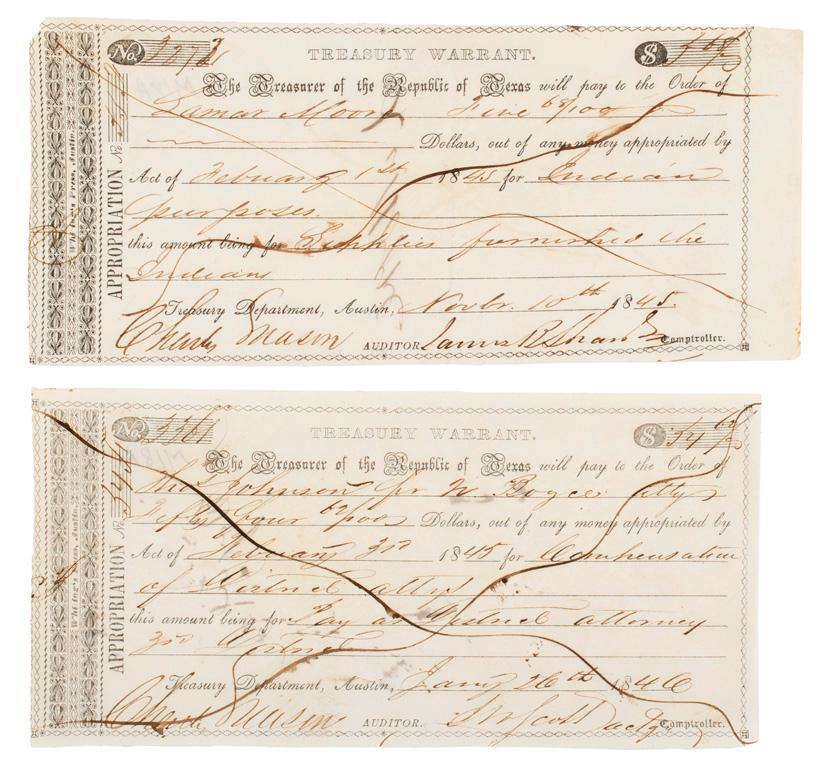 TREASURY WARRANT.
No.
$
The Treasurer of the Republic of Texas will pay to the Order of
Lamar Moore Five 68/100
Dollars, out of any money appropriated by
Act of February 1st 1845 for Indian
purposes.
this amount being for Supplies furnished the
Indians
Treasury Department, Austin, Novbr. 10th 1845.
Charles Mason AUDITOR. James B Shaw Comptroller.
APPROPRIATION No
Whiting's Press, Austin.
TREASURY WARRANT.
No.
$ 54
The Treasurer of the Republic of Texas will pay to the Order of
Johnson for W. Boyce atty
Fifty four /100 Dollars, out of any money appropriated by
Act of February 3rd 1845 for Compensation
of District attys
this amount being for Pay as District attorney
3rd District
Treasury Department, Austin, Jany 26th 1846
Charles Mason AUDITOR. Scott Comptroller.
APPROPRIATION No
Whiting's Press, Austin.